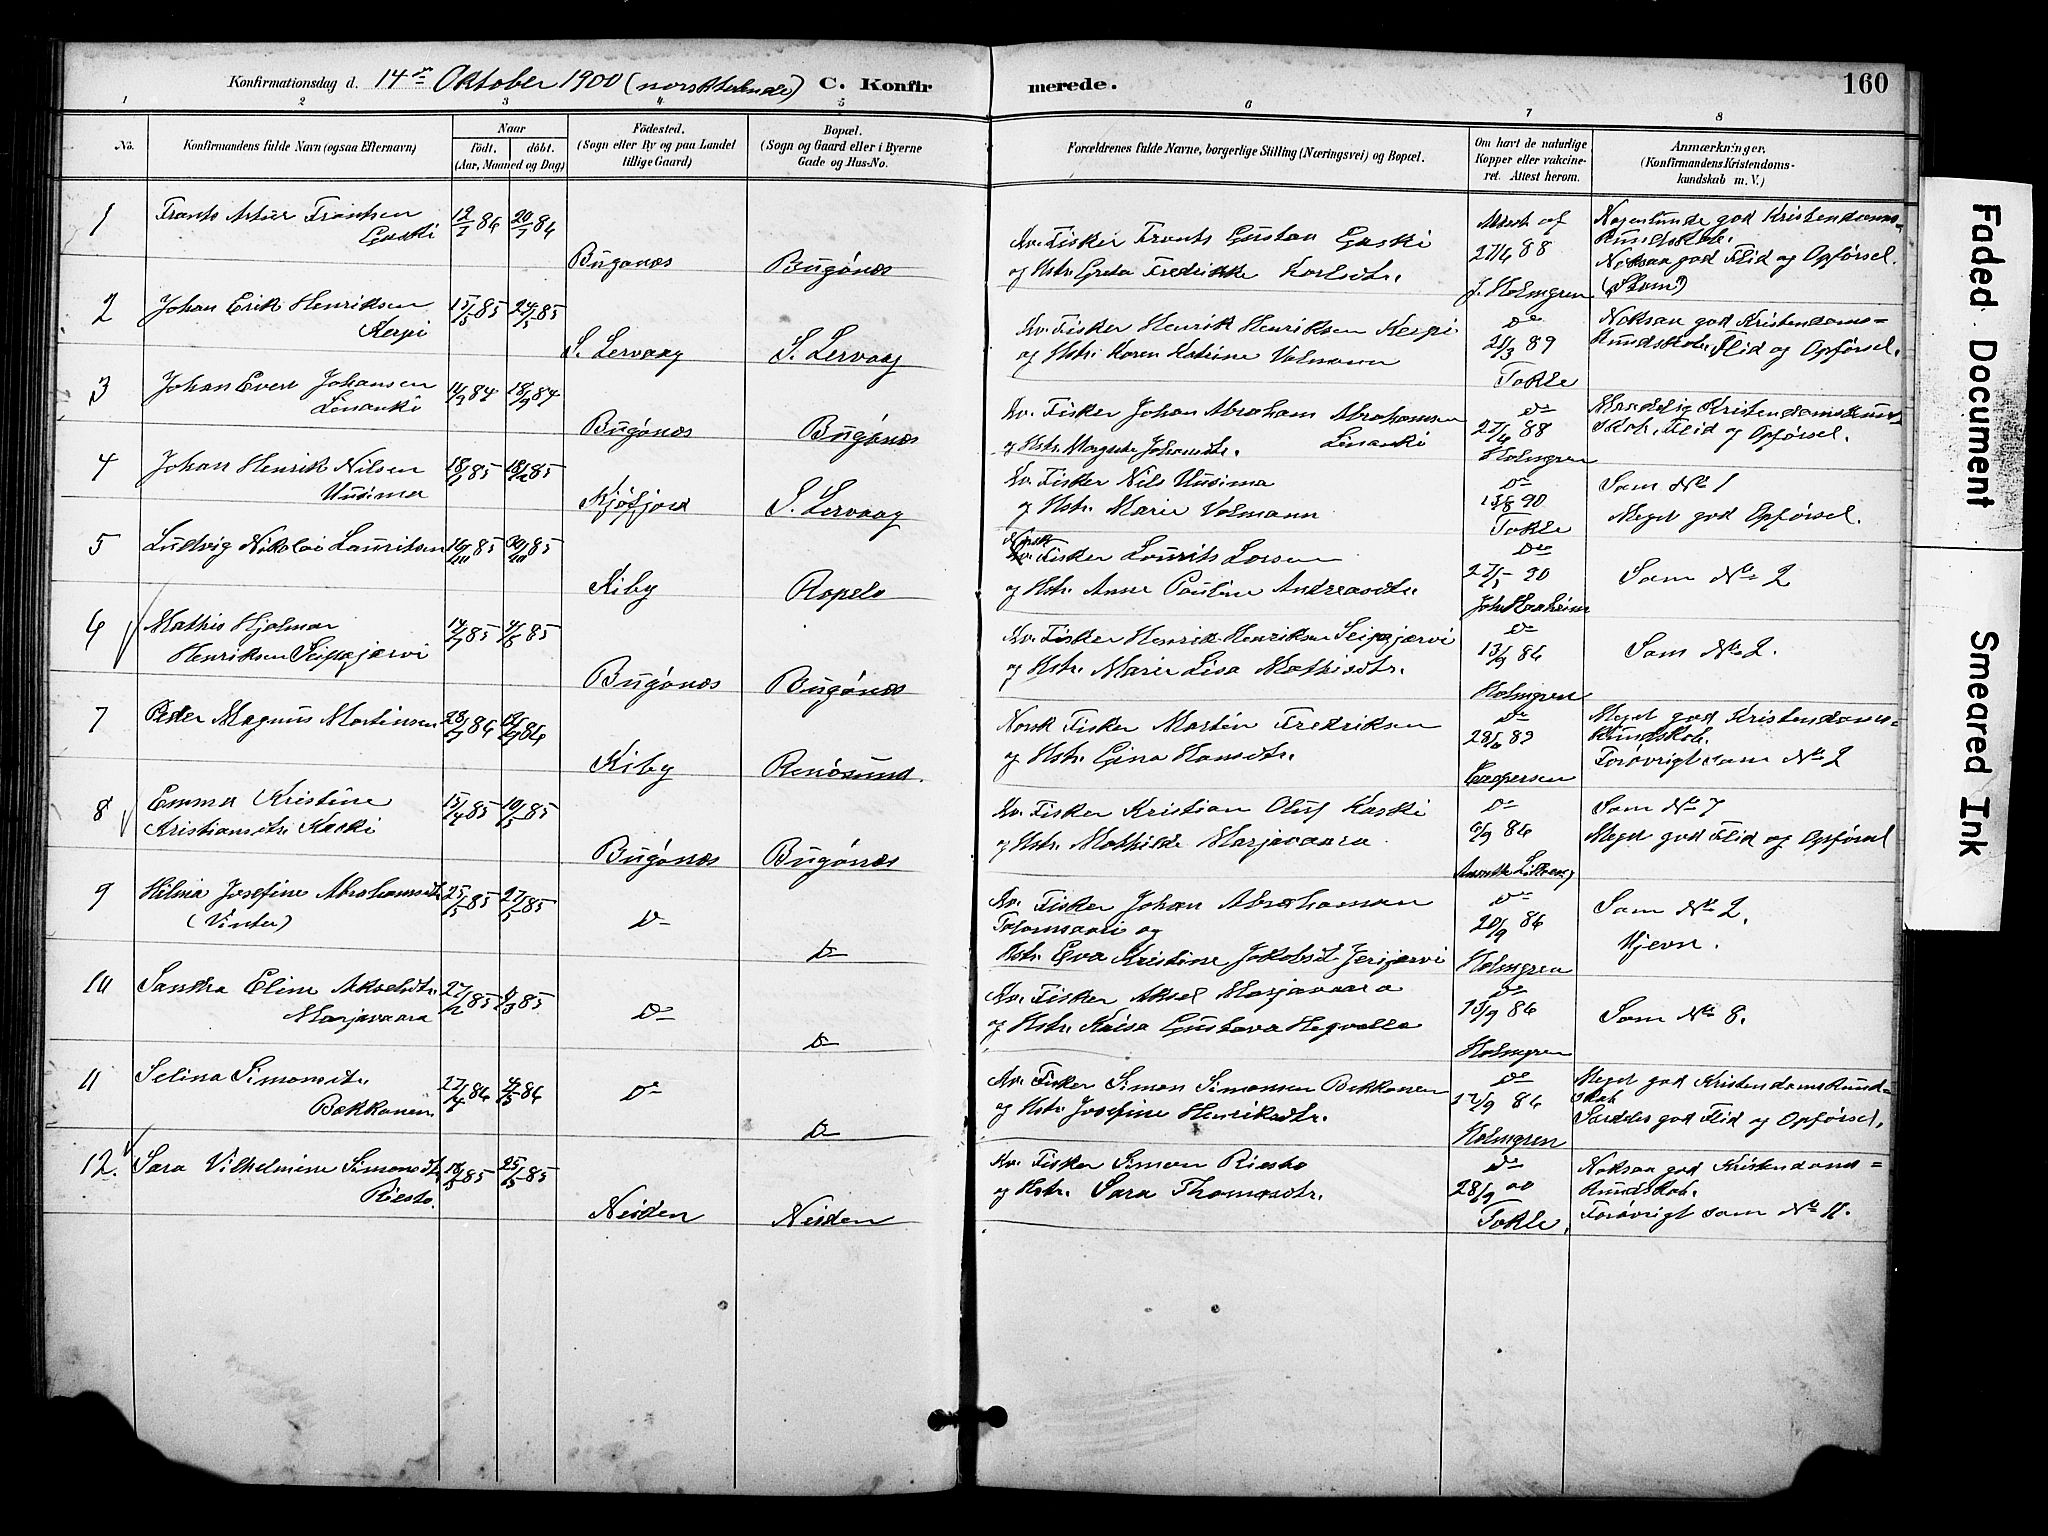 Konfirmationsdag d. 14de Oktober 1900 (norsktalende) C. Konfirmerede. 160
1 2 3 4 5 6 7 8
No.
Konfirmandens fulde Navn (ogsaa Efternavn)
Naar
født. døbt.
(Aar, Maaned og Dag)
Fødested.
(Sogn eller By og paa Landet
tillige Gaard)
Bopæl.
(Sogn og Gaard eller i Byerne
Gade og Hus-No.
Forældrenes fulde Navne, borgerlige Stilling (Næringsvei) og Bopæl.
Om havt de naturlige
Kopper eller vakcine-
ret. Attest herom.
Anmærkninger.
(Konfirmandens Kristendoms-
kundskab m. V.)
1 Frants Artur Frantsen
12/7 86 20/7 86
Bugønes Bugønes
Kv. Fisker Frants Gustav
og Hstr. Greta Fredrikke Karlsdtr.
Attest af
27/6 88
J. Holmgren
Nogenlunde god Kristendoms-
kundskab.
Noksaa god Flid og Opførsel.
2 Johan Erik Henriksen
15/5 85 24/5 85
S. Lervaag S. Lervaag
Kv. Fisker Henrik Henriksen
og Hstr. Karen Katrine Volmann
Do
21/3 89
Tokle
Noksaa god Kristendoms=
kundskab, Flid og Opførsel.
3 Johan Evert Johansen
Linanki
14/9 84 18/9 84
Bugønes Bugønes
Kv. Fisker Johan Abraham Abrahamsen
Linanki
og Hstr. Margrete Johansdtr.
Do
27/6 88
Holmgren
Maadelig Kristendomskund-
skab, Flid og Opførsel.
4 Johan Henrik Nilsen
Uusima
Kjøfjord S. Lervaag
Kv. Fisker Nils Uusima
og Hstr. Marie Volmann
Do
13/8 90
Tokle
Som No 1
Meget god Opførsel.
5 Ludvig Nikolai Lauritsen
16/10 85 30/10 85
Kiby Ropelv
Norsk
Fisker Laurits Larsen
og Hstr. Anne Pauline Andreasdtr.
Do
27/5 90
Som No 2
6 Mathis Hjalmar
Henriksen Seipajærvi
14/7 85
Bugønes Bugønes
Kv. Fisker Henrik Henriksen Seipajærvi
og Hstr. Marie Lisa Mathisdtr.
Do
13/9 86
Holmgren
Som No 2.
7 Peder Magnus Martinsen
Kiby Renøsund.
Norsk Fisker Martin Fredriksen
og Hstr. Gina Hansdtr.
Do
28/6 89
Caspersen
Meget god Kristendoms=
kundskab.
Forøvrigt som No 2
8 Emma Kristine
Kristiansdtr. Kaski
15/4 85 10/5 85
Bugønes Bugønes
Kv. Fisker Kristian Oluf Kaski
og Hstr. Mathilde Marjavaara
Do
6/9 86
Som No 7
Meget god Flid og Opførsel
9 Hilma Josefine Abrahamsdtr
(Vinter)
25/5 85 27/5 85
Do
Do
Kv. Fisker Johan Abrahamsen
og
Hstr. Eva Kristine Jakobsdt. Jerijærvi
Do
20/9 86
Holmgren
Som No 2.
Ujevn.
10 Sandra Eline Akselsdtr.
Marjavaara
Do
Do
Kv. Fisker Aksel Marjavaara
og Hstr. Kaisa Gustava
Do
13/9 86
Holmgren
Som No 8.
11 Selina Simonsdtr.
Bækkanen
27/4 86 4/5 86
Do
Do
Kv. Fisker Simon Simonsen Bækkanen
og Hstr. Josefine Henriksdtr.
Do
17/9 86
Holmgren
Meget god Kristendomskund-
skab
Særdeles god Flid og Opførsel.
12. Sara Vilhelmine Simonsdtr.
Riesto.
Neiden Neiden
Kv. Fisker Simon Riesto
og Hstr. Sara Thomasdtr.
Do
28/9 00
Tokle.
Noksaa god Kristendoms=
kundskab.
Forøvrigt som No 11.
Faded Document Smeared Ink